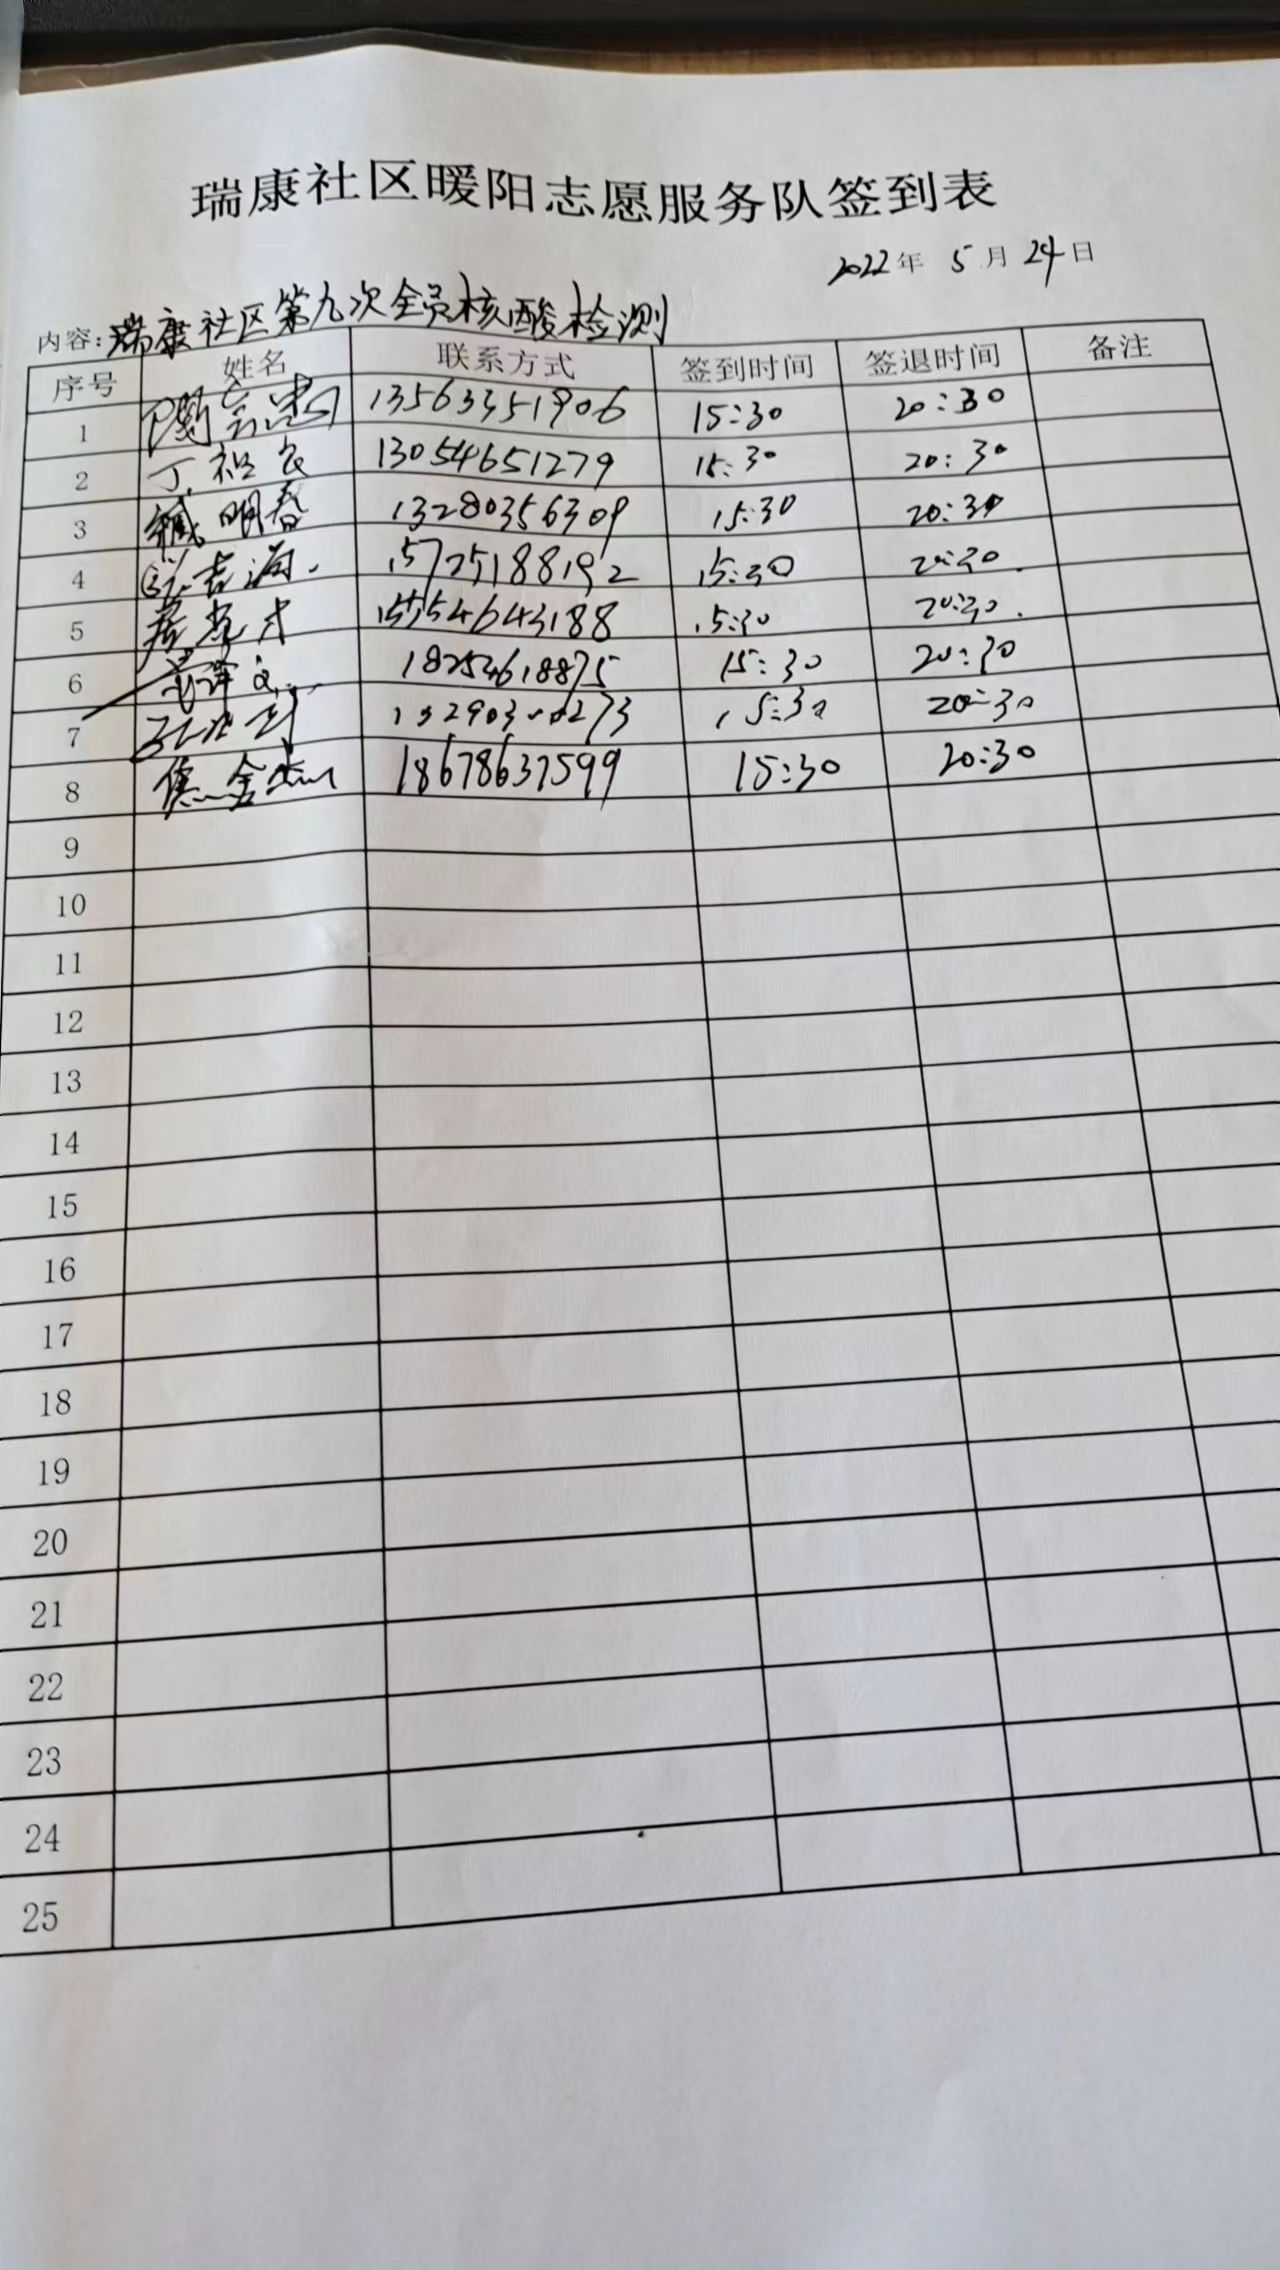 瑞康社区暖阳志愿服务队签到表
2022年 5月24日
内容:瑞康社区第九次全员核酸检测
序号 姓名 联系方式 签到时间 签退时间 备注
1 13563351906 15:30 20:30
2 丁 13054651279 15:30 20:30
3 臧明春 13280356309 15:30 20:30
4 15725188192 15:30 20:30
5 15554643188 15:30 20:30
6 18254618875 15:30 20:30
7 15:30 20:30
8 焦金 18678637599 15:30 20:30
9
10
11
12
13
14
15
16
17
18
19
20
21
22
23
24
25